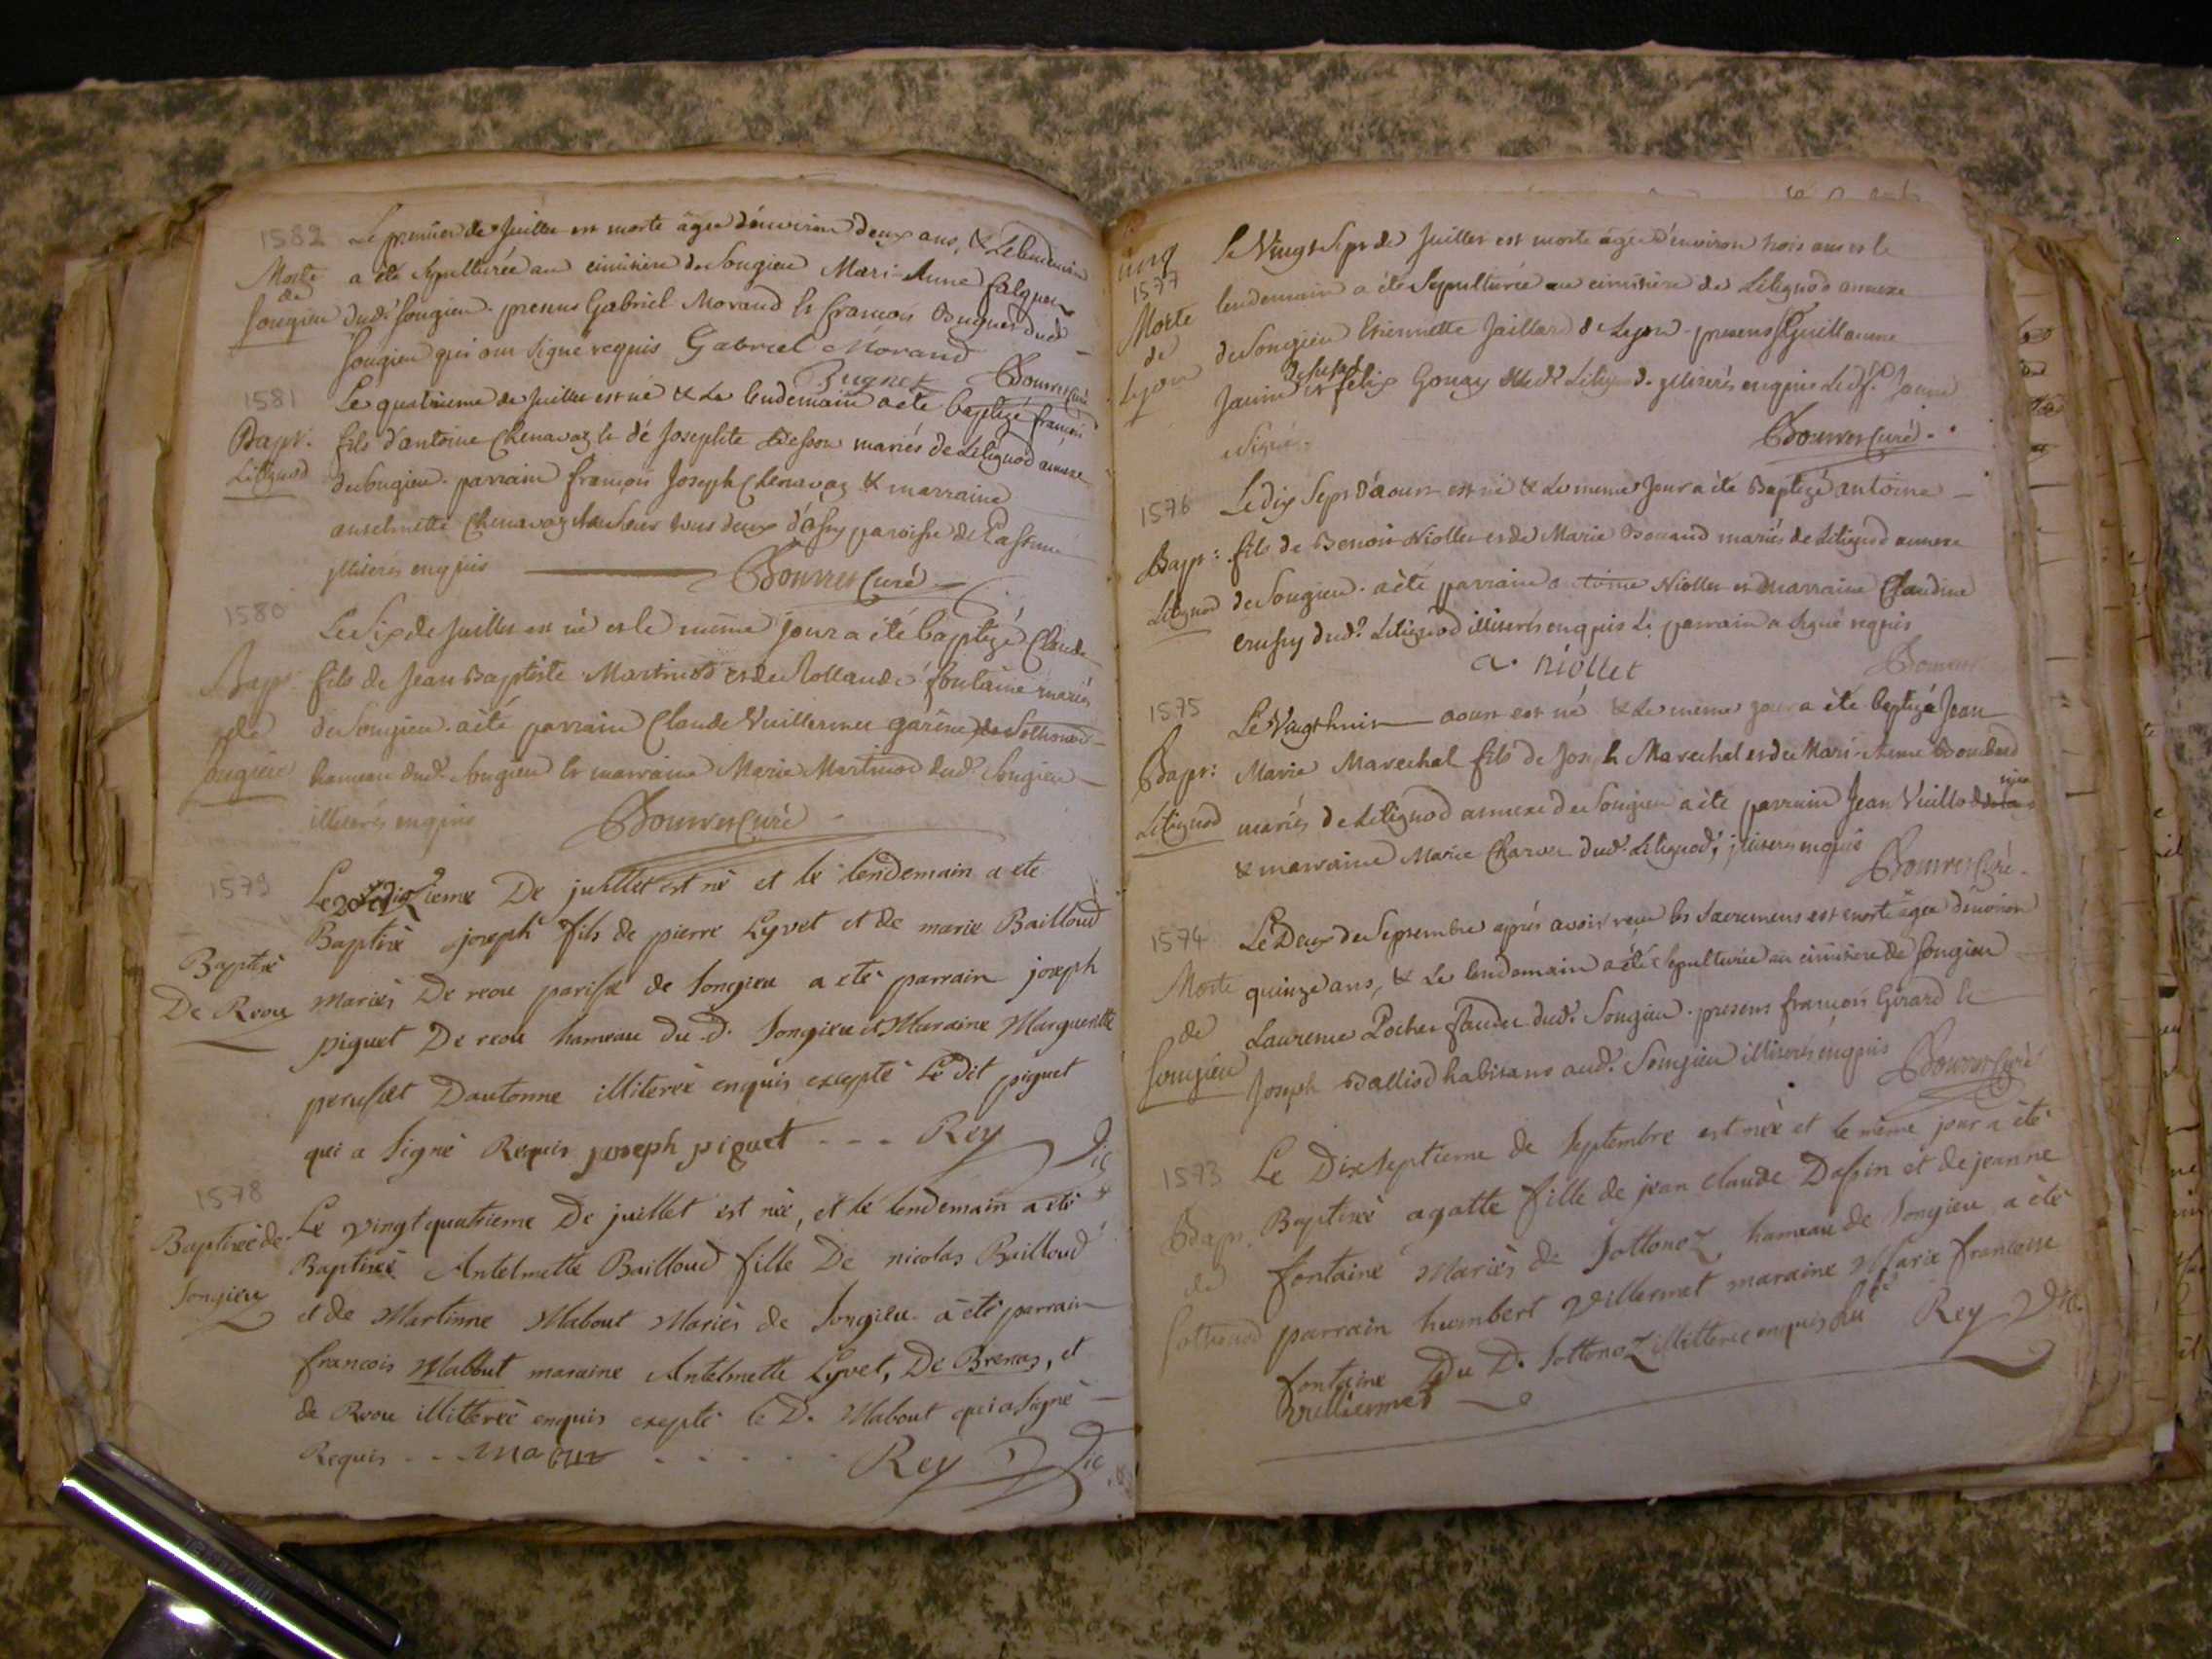 1582
Le premier de Juillet est morte âgée d'environ deux ans, & Le lendemain
Morte a été sepulturée au cimitiere de Songieu Marie Anne
de
Songieu dud. Songieu. presens Gabriel Morand & françois Bugnet dud.
Songieu qui ont signé requis Gabriel Morand
Bugnet Bouvet Curé
1581
Le quatrieme de Juillet est né & Le lendemain a été baptizé françois
Bapt. fils d'antoine Chenavaz & de Josephte mariés de Lilignod annexe
Lilignod
de Songieu. parrain françois Joseph Chenavaz & marraine
anselmette Chenavaz tous deux paroisse de
illiterés enquis Bouvet Curé
1580
Le Six de Juillet est né et le même jour a été baptizé Claude
Bapt. fils de Jean Baptiste Martinod et de Rollande fontaine mariés
de de Songieu. a été parrain Claude Vuillermet
Songieu hameau dud. Songieu & marraine Marie Martinod dud. Songieu
illiterés enquis Bouvet Curé
1579
Le De juillet est né et le lendemain a ete
Baptisé joseph fils de pierre Lyvet et de marie Bailloud
Baptisé
De Reou mariés De reou de Songieu a eté parrain joseph
piguet De reou hameau du d. Songieu et Maraine Marguerite
Dautonne illiterée enquis excepté Le dit piguet
qui a Signé Requis joseph piguet - - - Rey Vic
1578
Le vingt quatrieme De juillet est née, et le lendemain a été
Baptisée de
Baptisée Antelmette Bailloud fille De nicolas Bailloud
Songieu
et de Martinne Mabout Mariés de Songieu a été parrain
francois Mabout maraine Antelmette Lyvet, De Brenas, et
de Reou illitterée enquis exepté le D. Mabout qui a Signé
Requis - - Rey Vic
Le Vingt Sept de Juillet est morte âgée d'environ trois ans et le
1577
Morte lendemain a été Sepulturée au cimitiere de Lilignod annexe
de de Songieu Etiennette Jaillard de Lyon. presens Guillaume
Lyon Janin et félix Gonay dud. Lilignod. illiterés enquis Led. Janin
Signé.
Bouvet Curé.
1576
Le dix Sept d'aoust est né & Le meme Jour a été Baptizé antoine
Bapt: fils de Benoit Niollet et de Marie Bonaud mariés de Lilignod annexe
Lilignod de Songieu. a été parrain Niollet et marraine Claudine
dud. Lilignod illiterés enquis Le parrain a signé requis
a. niollet Bouvet
1575
Le Vingt huit aoust est né & Le meme jour a été baptizé Jean
Bapt: Marie Marechal fils de Joseph Marechal et de Marie Anne
Lilignod mariés de Lilignod annexe de Songieu a été parrain Jean
& marraine Marie Charvet dud. Lilignod, illiterés enquis
Bouvet Curé.
1574
Le Deux de Septembre aprés avoir reçu les Sacremens est morte âgée d'environ
Morte quinze ans, & Le lendemain a été Sepulturée au cimitiere de Songieu
de Laurence Pochet dud. Songieu. presens françois Girard &
Songieu Joseph Balliod habitans aud. Songieu illiterés enquis Bouvet Curé
1573
Le Dix Septieme de Septembre est née et le même jour a été
Bapt. Baptisée agatte fille de jean claude Dassin et de jeanne
de fontaine Mariés de Sottonoz hameau de Songieu a été
Sothonod parrain humbert villermet maraine Marie francoise
fontaine Du D. Sottonoz illitterée enquis Rey Vic.
villiermet